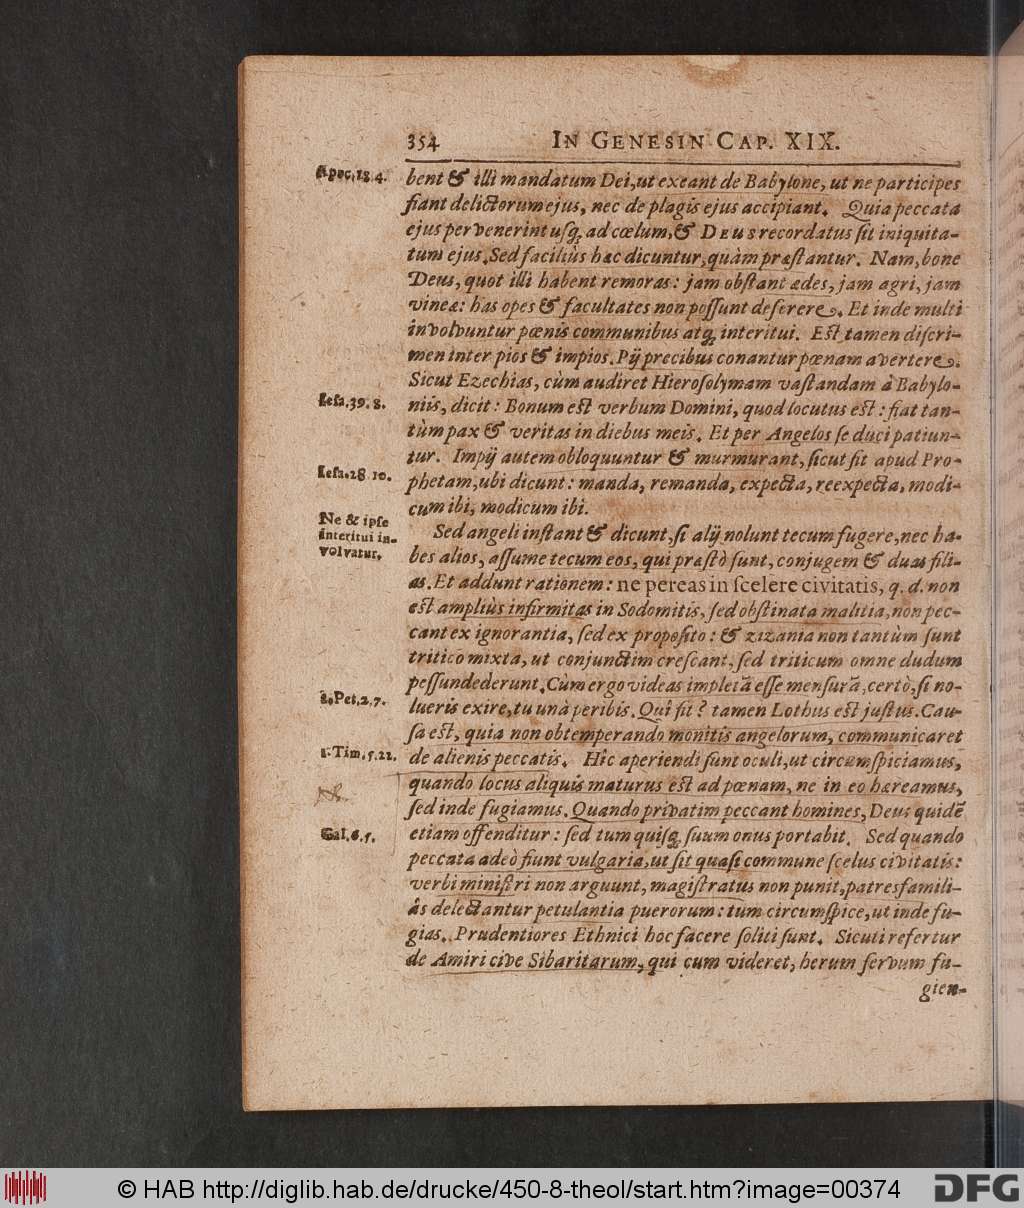 354 IN GENESIN CAP. XIX.
Apoc. 18. 4.
bent & illi mandatum Dei, ut exeant de Babylone, ut ne participes
fiant delictorum ejus, nec de plagis ejus accipiant. Quia peccata
ejus pervenerint usq; ad cœlum, & DEUS recordatus sit iniquita-
tum ejus. Sed faciliùs hæc dicuntur, quàm præstantur. Nam, bone
Deus, quot illi habent remoras: jam obstant ædes, jam agri, jam
vineæ: has opes & facultates non possunt deserere. Et inde multi
involvuntur pœnis communibus atq; interitui. Est tamen discri-
men inter pios & impios. Pij precibus conantur pœnam avertere.
Sicut Ezechias, cùm audiret Hierosolymam vastandam à Babylo-
Iesa. 39. 8.
niis, dicit: Bonum est verbum Domini, quod locutus est: fiat tan-
tùm pax & veritas in diebus meis. Et per Angelos se duci patiun-
tur. Impij autem obloquuntur & murmurant, sicut fit apud Pro-
Iesa. 28. 10.
phetam, ubi dicunt: manda, remanda, expecta, reexpecta, modi-
cum ibi, modicum ibi.
Ne & ipse
interitui in-
volvatur.
Sed angeli instant & dicunt, si alij nolunt tecum fugere, nec ha-
bes alios, assume tecum eos, qui præstò sunt, conjugem & duas fili-
as. Et addunt rationem: ne pereas in scelere civitatis, q. d. non
est ampliùs infirmitas in Sodomitis, sed obstinata malitia, non pec-
cant ex ignorantia, sed ex proposito: & zizania non tantùm sunt
tritico mixta, ut conjunctim crescant, sed triticum omne dudum
pessundederunt. Cùm ergo videas impletā esse mensurā, certò, si no-
2. Pet. 2. 7.
lueris exire, tu unà peribis. Quî fit? tamen Lothus est justus. Cau-
sa est, quia non obtemperando monitis angelorum, communicaret
1. Tim. 5. 22.
de alienis peccatis. Hîc aperiendi sunt oculi, ut circumspiciamus,
quando locus aliquis maturus est ad pœnam, ne in eo hæreamus,
sed inde fugiamus. Quando privatim peccant homines, Deus quidē
Gal. 6. 5.
etiam offenditur: sed tum quisq; suum onus portabit. Sed quando
peccata adeò fiunt vulgaria, ut sit quasi commune scelus civitatis:
verbi ministri non arguunt, magistratus non punit, patresfamili-
âs delectantur petulantia puerorum: tum circumspice, ut inde fu-
gias. Prudentiores Ethnici hoc facere soliti sunt. Sicuti refertur
de Amiri cive Sibaritarum, qui cum videret, herum servum fu-
gien-
© HAB http://diglib.hab.de/drucke/450-8-theol/start.htm?image=00374
DFG